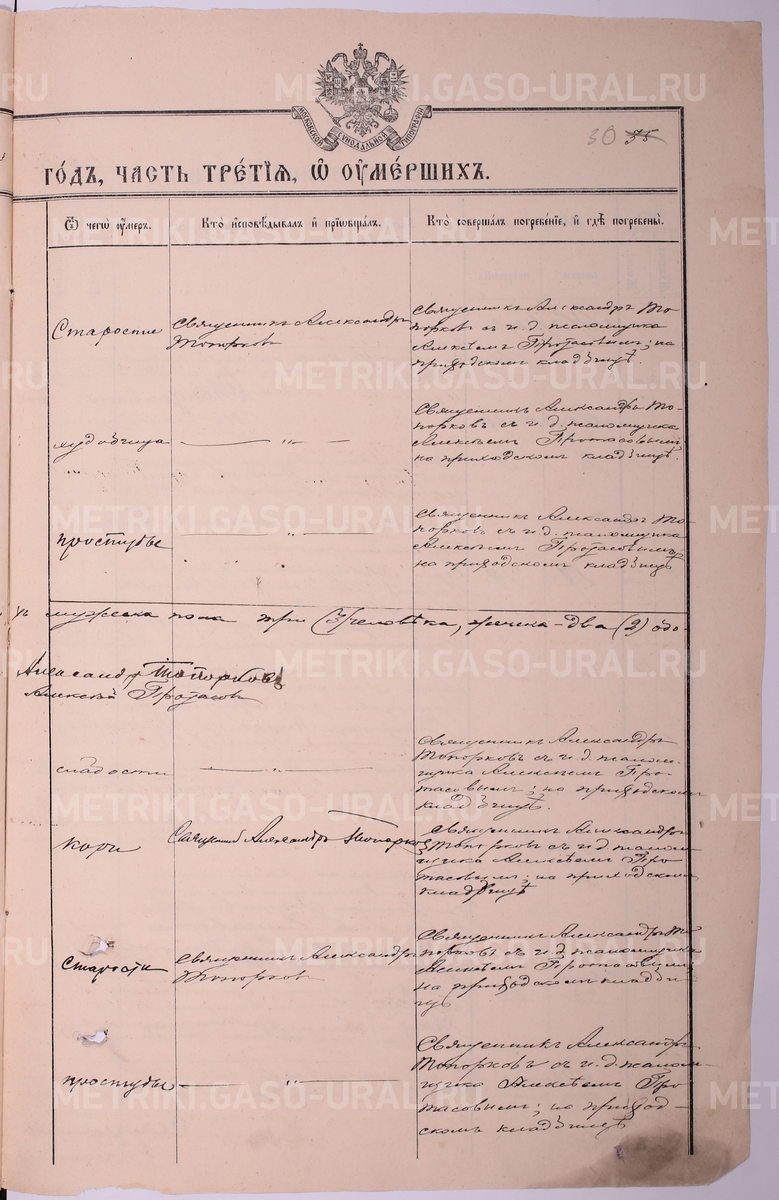 METRIKI.GASO-URAL.RU
МОСКОВСКОЙ СѴНОДАЛЬНОЙ ТИПОГРАФІИ
30 35
ГО́ДЪ, ЧАСТЬ ТРЕ́ТІѦ, Ѡ҆ ОУ҆МЕ́РШИХЪ.
Ѿ чегѡ̀ оу҆́меръ.
Кто̀ и҆сповѣ́дывалъ и҆ прїѡбща́лъ.
Кто̀ соверша́лъ погребе́нїе, и҆ гдѣ̀ погребены̀.
Старости
Священникъ Александръ
Топорковъ
Священникъ Александръ То-
порковъ съ и. д. псаломщика
Алексѣемъ Протасовымъ; на
приходскомъ кладбищѣ.
— " —
Священникъ Александръ То-
порковъ съ и. д. псаломщика
Алексѣемъ Протасовымъ
на приходскомъ кладбищѣ.
простуды
— " —
Священникъ Александръ То-
порковъ съ и. д. псаломщика
Алексѣемъ Протасовымъ
на приходскомъ кладбищѣ
мужеска пола три (3) человѣка, женска - два (2) обо-
Александръ Топорковъ
Алексѣй Протасовъ
слабости
— " —
Священникъ Александръ
Топорковъ съ и. д. псалом-
щика Алексѣемъ Про-
тасовымъ; на приходскомъ
кладбищѣ.
кори
Священникъ Александръ Топорковъ
Священникъ Александръ
Топорковъ съ и. д. псалом-
щика Алексѣемъ Про-
тасовымъ; на приходскомъ
кладбищѣ
старости
Священникъ Александръ
Топорковъ
Священникъ Александръ То-
порковъ съ и. д. псаломщика
Алексѣемъ Протасовымъ
на приходскомъ кладби-
щѣ
простуды
— " —
Священникъ Александръ
Топорковъ съ и. д. псалом-
щика Алексѣемъ Про-
тасовымъ; на приход-
скомъ кладбищѣ